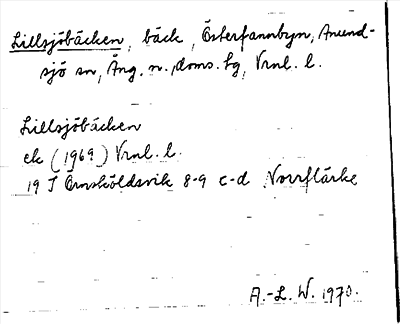 Lillsjöbäcken, bäck, Österfannbyn, Anund-
sjö sn, Ång. n. doms. tg, Vrnl. l.
Lillsjöbäcken
ek (1969) Vrnl. l.
19 J Örnsköldsvik 8-9 c-d Norrflärke
A.-L. W. 1970.